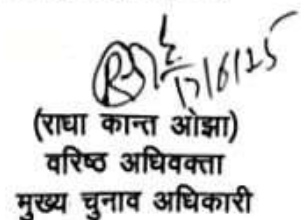 17/6/25
(राधा कान्त ओझा)
वरिष्ठ अधिवक्ता
मुख्य चुनाव अधिकारी